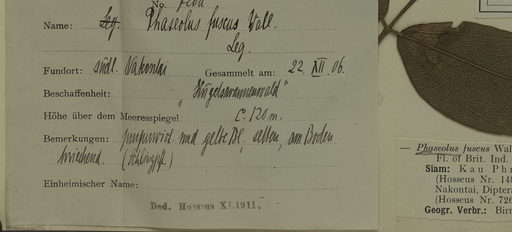 No.
Name: Leg. Phaseolus fuscus Wall.
Leg.
Fundort: südl. Nakontai Gesammelt am: 22. XII. 06.
Beschaffenheit: „Hügelsavannenwald"
Höhe über dem Meeresspiegel: c. 120 m.
Bemerkungen: und gelbe Bl., selten, am Boden
kriechend. (Schlingpfl.)
Einheimischer Name:
Ded. Hosseus XI.1911.
— Phaseolus fuscus Wal
Fl. of Brit. Ind.
Siam: Kau Phr
(Hosseus Nr. 148
Nakontai, Dipter
(Hosseus Nr. 726
Geogr. Verbr.: Birm